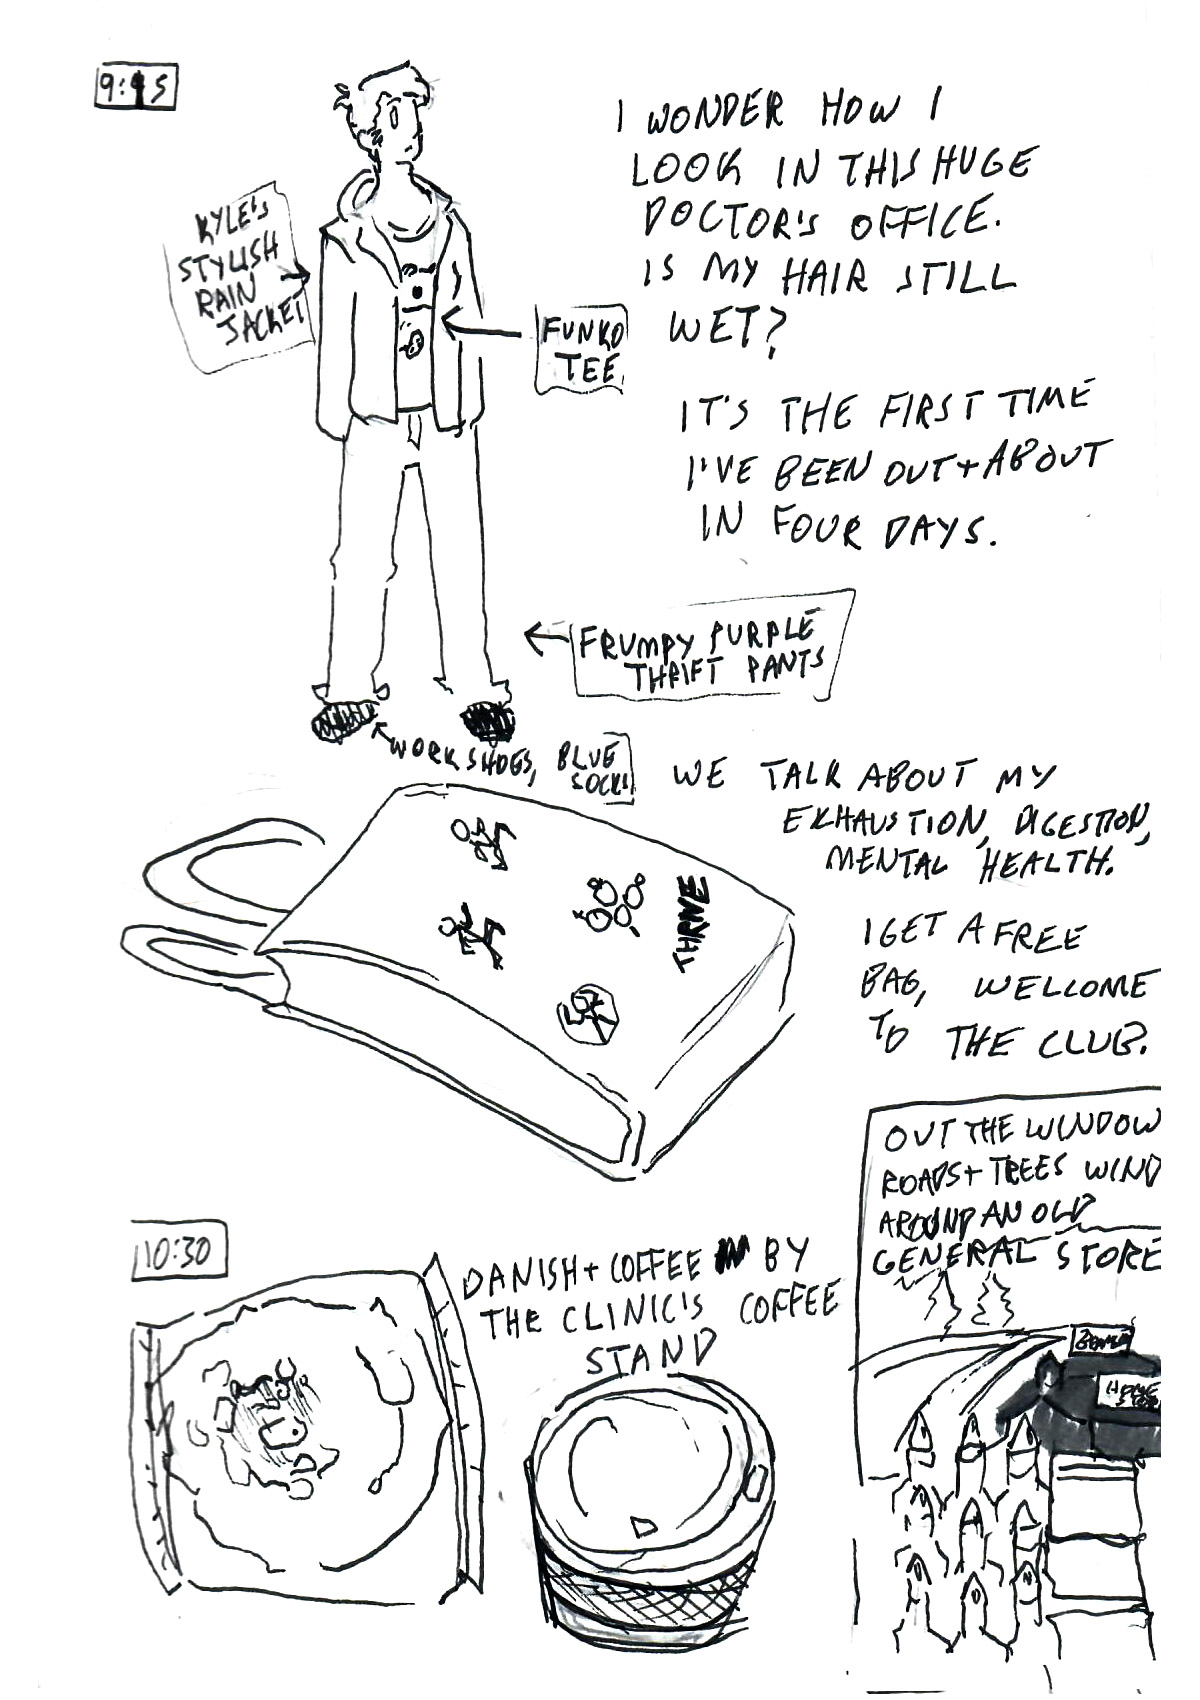 9:45
I WONDER HOW I
LOOK IN THIS HUGE
DOCTOR'S OFFICE.
IS MY HAIR STILL
WET?
KYLE'S
STYLISH
RAIN
JACKET
FUNKO
TEE
IT'S THE FIRST TIME
I'VE BEEN OUT + ABOUT
IN FOUR DAYS.
FRUMPY PURPLE
THRIFT PANTS
WORK SHOES, BLUE
SOCKS
WE TALK ABOUT MY
EXHAUSTION, DIGESTION,
MENTAL HEALTH.
THRIVE
I GET A FREE
BAG, WELCOME
TO THE CLUB.
OUT THE WINDOW
ROADS + TREES WIND
AROUND AN OLD
GENERAL STORE
10:30
DANISH + COFFEE BY
THE CLINIC'S COFFEE
STAND